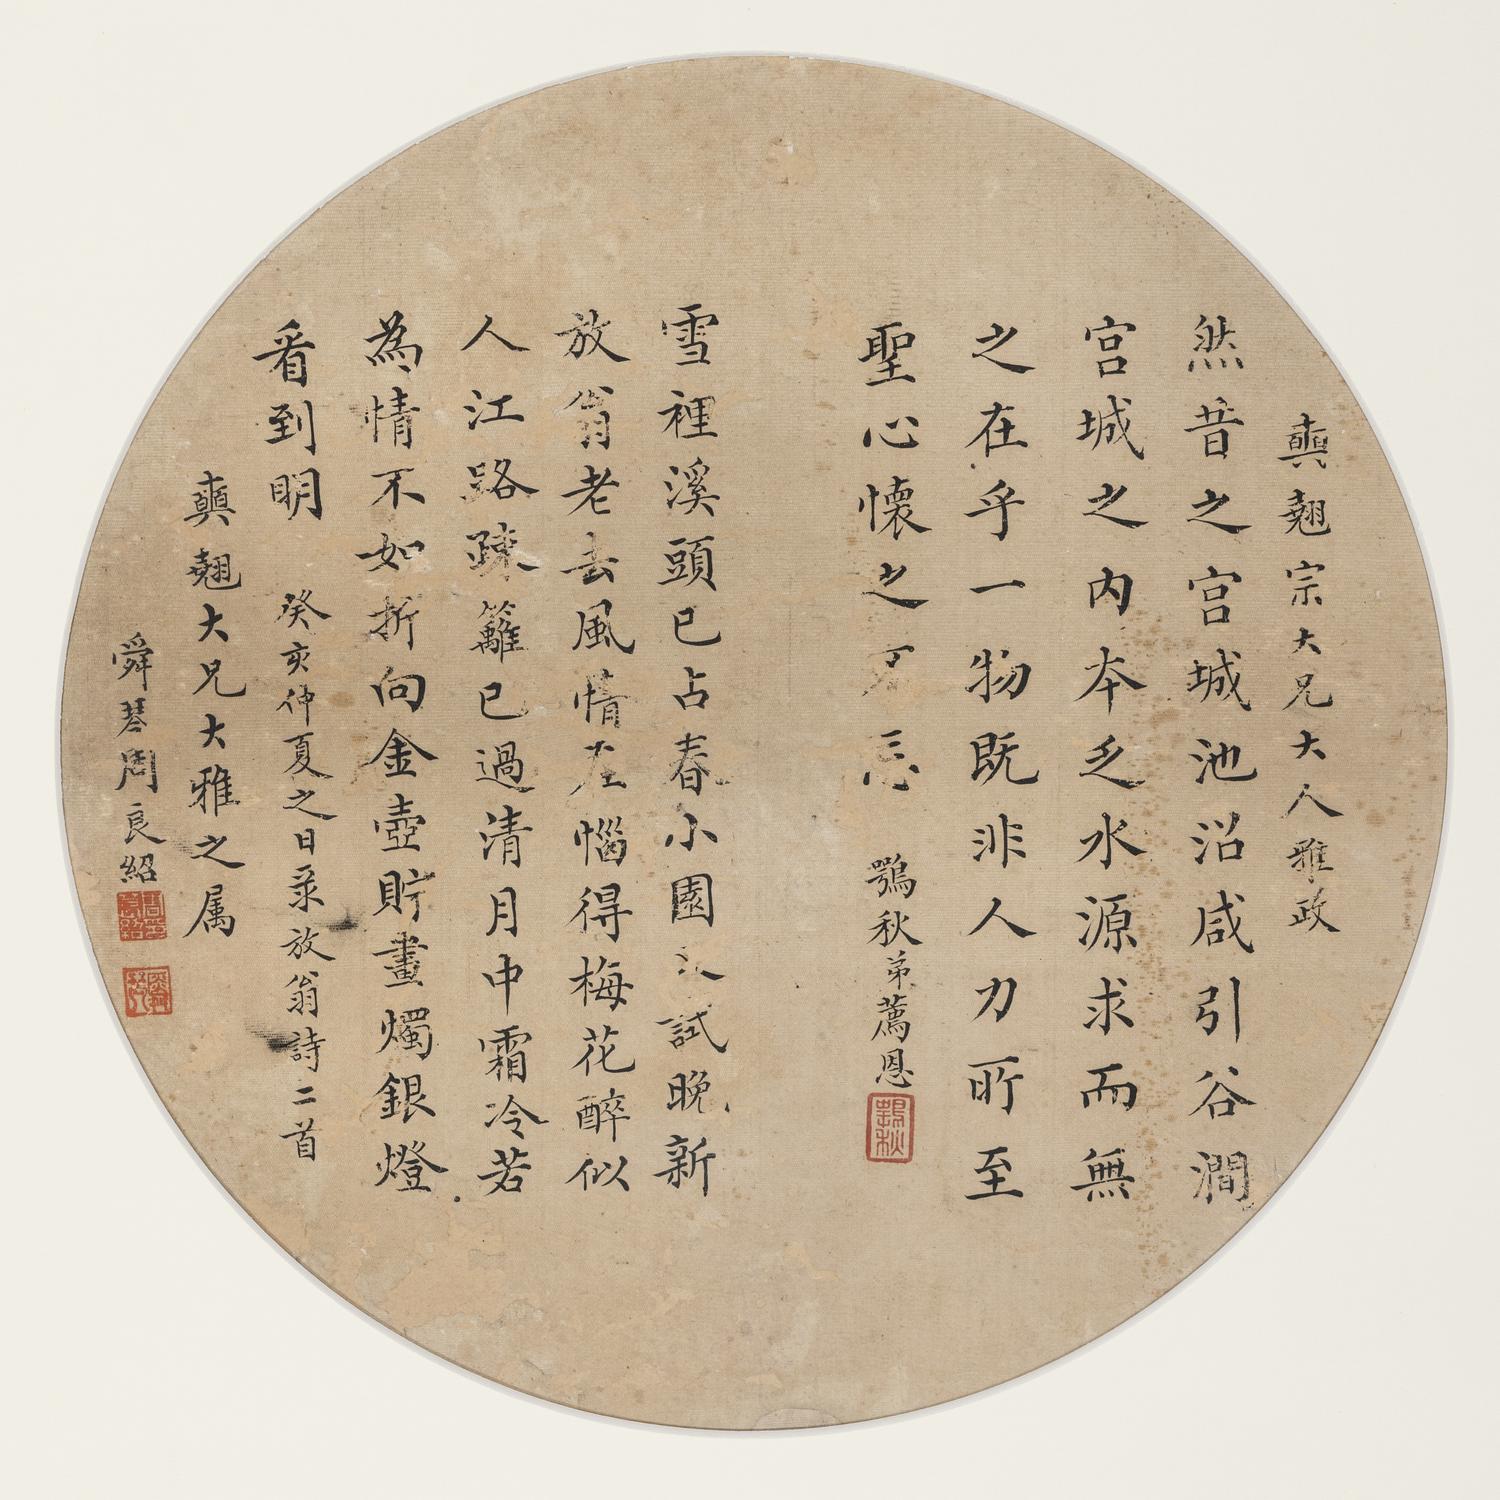 奭翹宗大兄大人雅政
然昔之宫城池沼咸引谷澗
宫城之内本乏水源求而無
之在乎一物既非人力所至
聖心懷之不忘
鶚秋弟薦恩
鶚秋
雪裡溪頭已占春小園又試晚新
放翁老去風情在惱得梅花醉似
人江路疎籬已過清月中霜冷若
為情不如折向金壺貯畫燭銀燈
看到明
癸亥仲夏之日录放翁詩二首
奭翹大兄大雅之属
舜琴周良紹